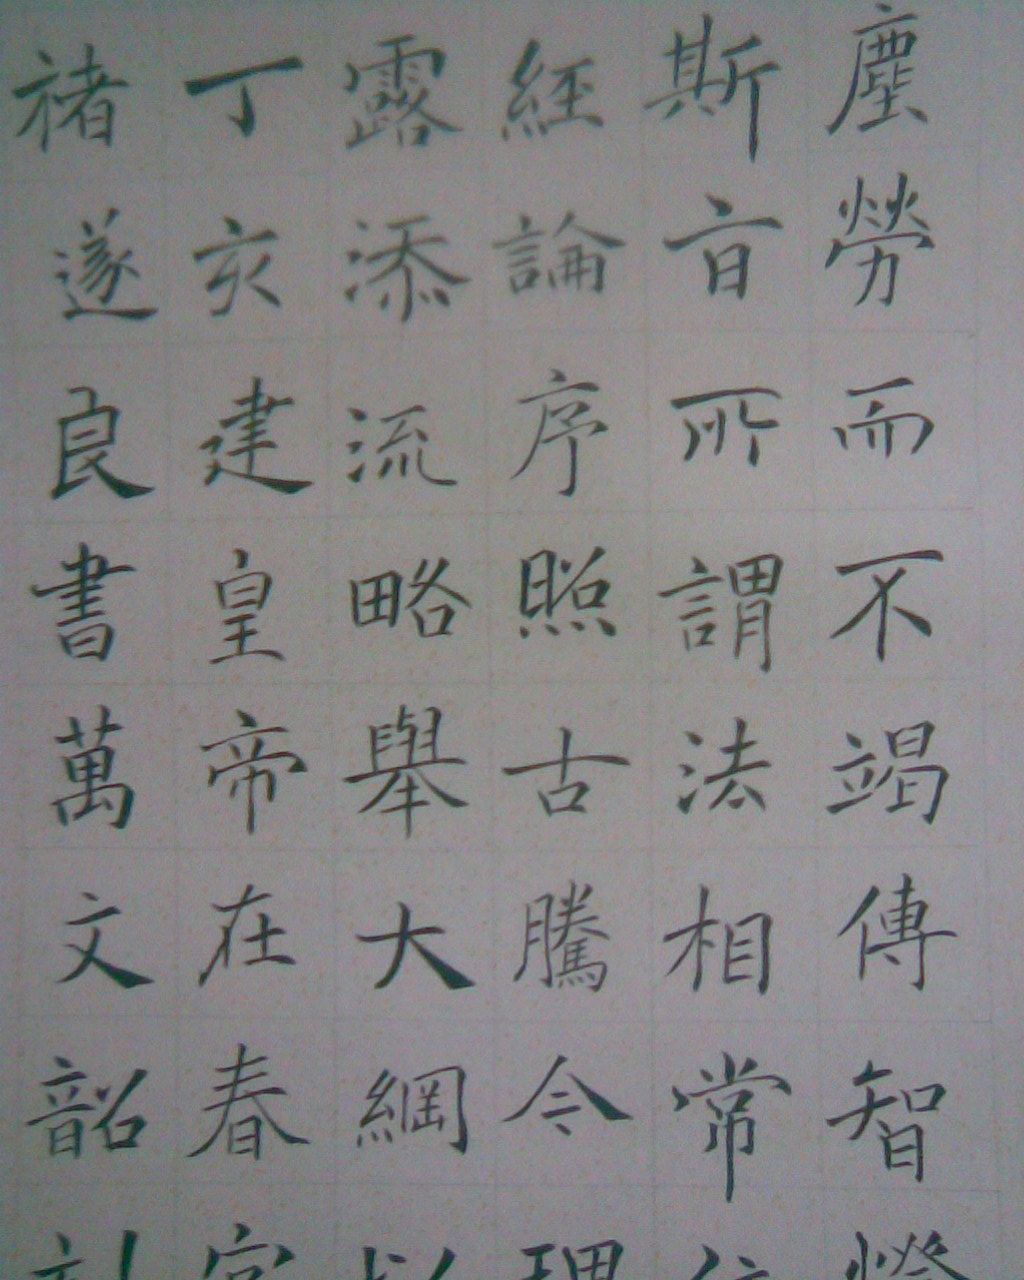 塵勞而不竭傳智燈
斯旨所謂法相常住
經論序照古騰今理
露添流略舉大綱以
丁亥建皇帝在春宮
褚遂良書萬文韶刻